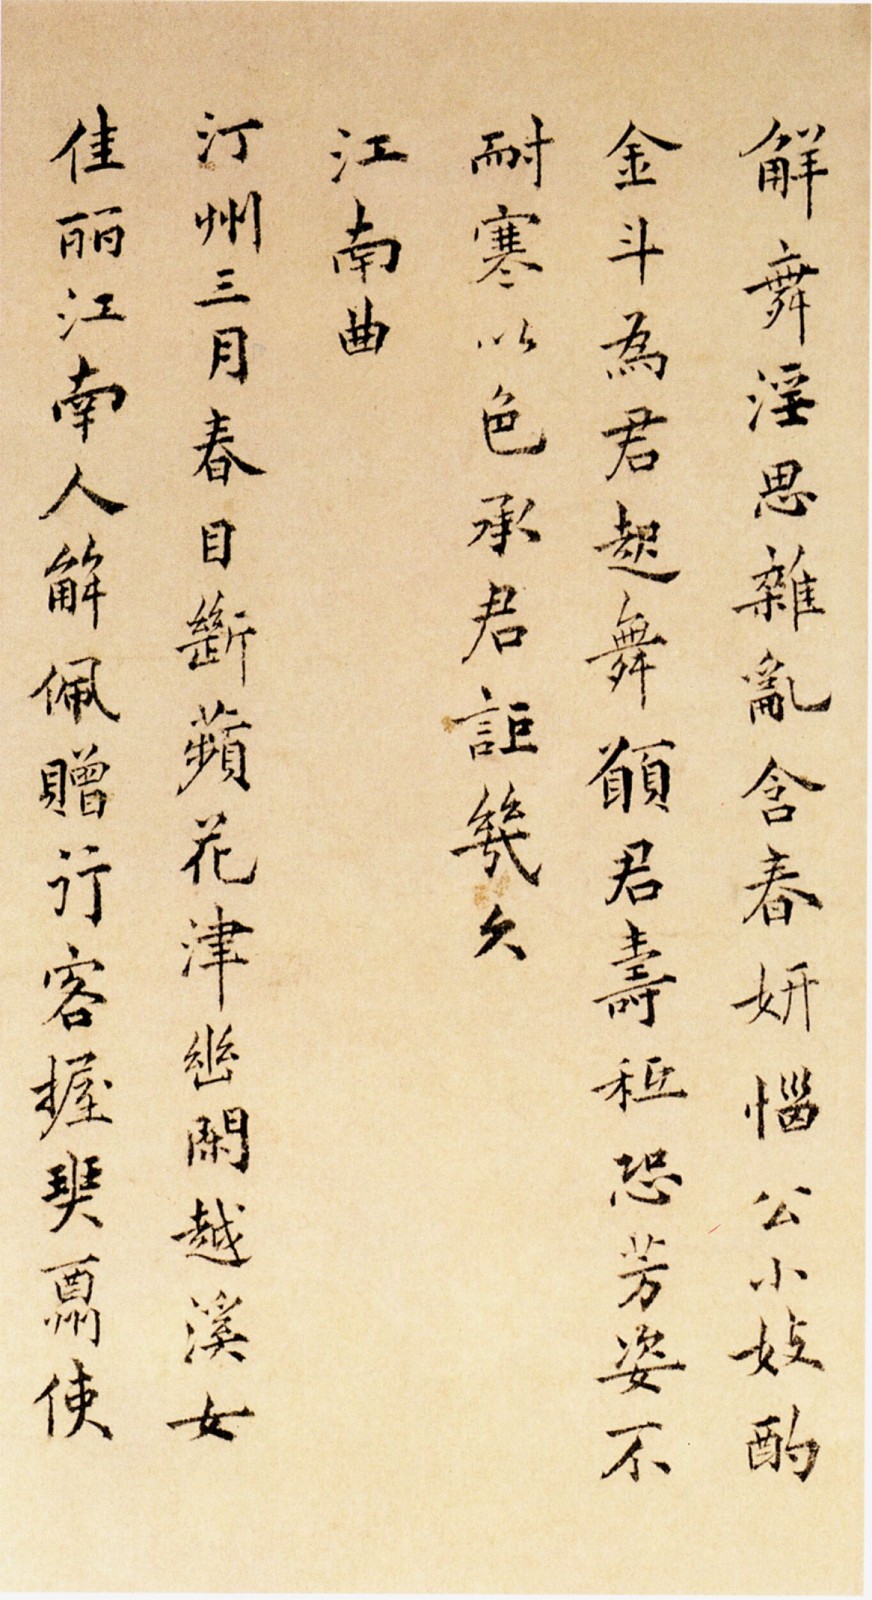 解舞淫思雜亂含春妍惱公小妓酌
金斗為君起舞願君壽秪恐芳姿不
耐寒以色承君詎幾久
江南曲
汀州三月春目斷蘋花津幽閑越溪女
佳丽江南人解佩贈行客握使